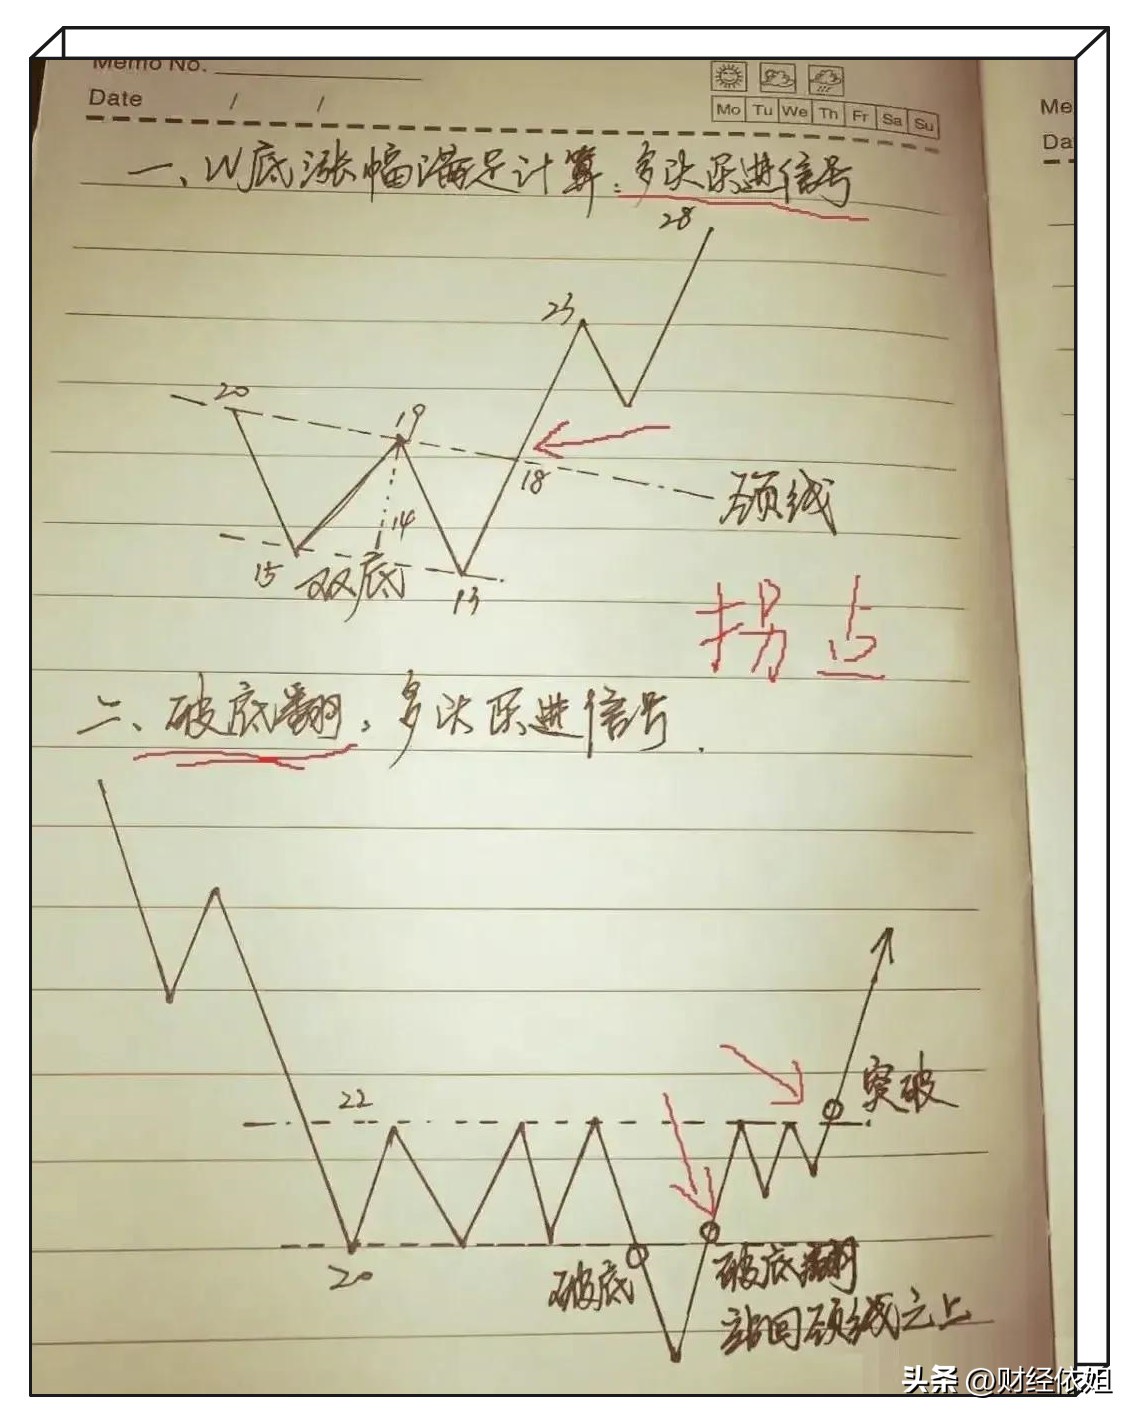 Memo No.
Date / /
Mo Tu We Th Fr Sa Su
Me
Da
一、W底涨幅满足计算：多头买进信号
28
23
20
19
18
颈线
14
15
双底
13
拐点
二、破底翻，多头买进信号.
22
突破
20
破底
破底翻
站回颈线之上
头条 @财经依姐